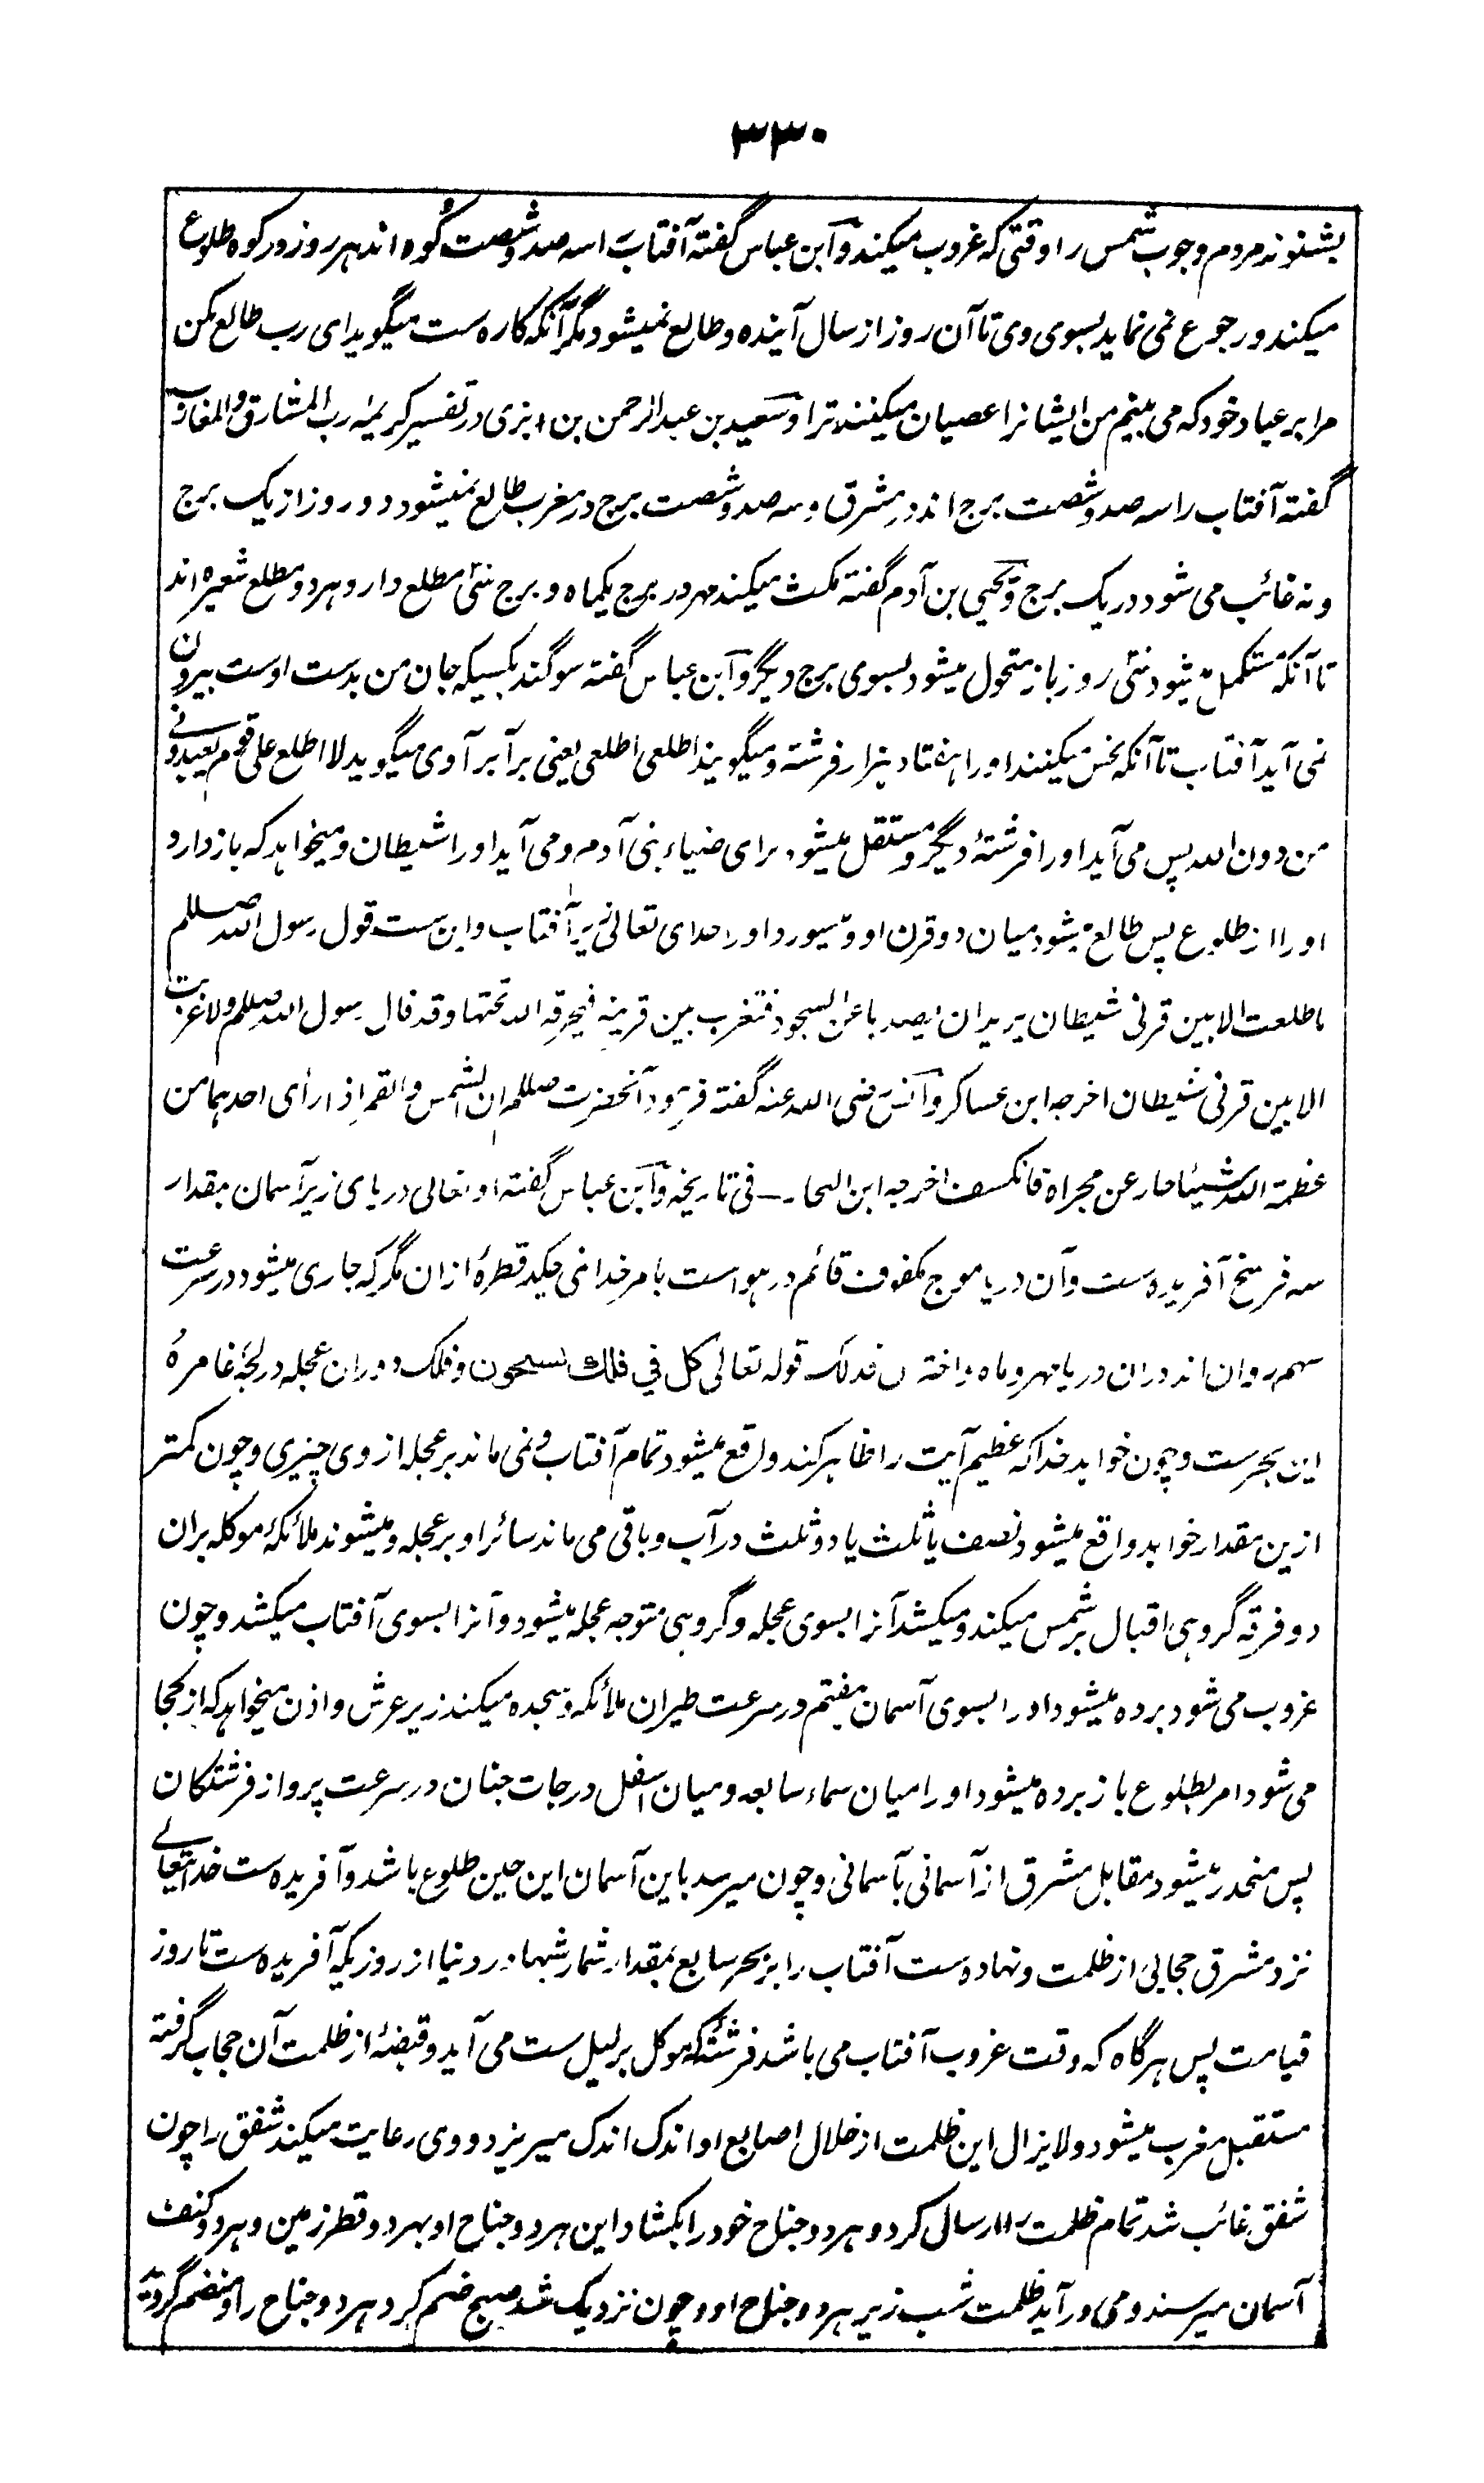 ۳۳۰
بشنوند مردم وجوب شمس را وقتی که غروب میکند و ابن عباس گفته آفتاب را سه صد و شصت کوه اند هر روز در کوه طلوع
میکند و رجوع نمی نماید بسوی وی تا آن روز از سال آینده و طالع نمیشود مگر آنکه کاره ست میگوید ای رب طالع مکن
مرا بر عباد خود که می بینم من ایشانرا عصیان میکنند ترا و سعید بن عبد الرحمن بن ابزی در تفسیر کریمه رب المشارق والمغارب
گفته آفتاب را سه صد و شصت برج اند در مشرق و سه صد و شصت برج در مغرب طالع نمیشود دو روز از یک برج
و نه غائب می شود در یک برج و یحیی بن آدم گفته مکث میکند مهر در برج یکماه و برج سی مطلع دارد و هر دو مطلع شعیره اند
تا آنکه مستکمل میشود سی روز باز متحول میشود بسوی برج دیگر و ابن عباس گفته سوگند بکسیکه جان من بدست اوست بیرون
نمی آید آفتاب تا آنکه نخس میکنند او را هفتاد هزار فرشته و میگویند اطلعی اطلعی یعنی برآ برآ وی میگوید لا اطلع علی قوم یعبدونی
من دون الله پس می آید او را فرشتهٔ دیگر و مستقل میشود برای ضیاء بنی آدم و می آید او را شیطان و میخواهد که باز دارد
او را از طلوع پس طالع میشود میان دو قرن او و میسوزد او را خدای تعالی زیر آفتاب و این ست قول رسول الله صللم
ما طلعت الا بین قرنی شیطان یریدان یصدها عن السجود فتغرب بین قرنیه فیحرقه الله تحتها و قد قال رسول الله صللم و لا غربت
الا بین قرنی شیطان اخرجه ابن عساکر و انس رضی الله عنه گفته فرمود آنحضرت صللم ان الشمس والقمر اذا رأی احدهما من
عظمة الله شیئا حار عن مجراه فانکسف اخرجه ابن النجار فی تاریخه و ابن عباس گفته او تعالی دریای زیر آسمان بمقدار
سه فرسخ آفریده ست و آن دریا موج مکفوف قائم در هواست بامر خدا نمی چکد قطرهٔ ازان مگر که جاری میشود در سرعت
سهم روان اند دران دریا مهر و ماه و اختر ان فذلک قوله تعالی کل فی فلک یسبحون و فلک دوران عجله در لجهٔ غامرهٔ
این بحرست و چون خواهد خدا که عظیم آیت را ظاهر کند واقع میشود تمام آفتاب و نمی ماند بر عجله از وی چیزی و چون کمتر
ازین مقدار خواهد واقع میشود نصف یا ثلث یا دو ثلث در آب و باقی می ماند سائر او بر عجله و میشوند ملائکهٔ موکله بران
دو فرقه گروهی اقبال بر شمس میکند و میکشد آنرا بسوی عجله و گروهی متوجه عجله میشود و آنرا بسوی آفتاب میکشد و چون
غروب می شود برده میشود او را بسوی آسمان هفتم در سرعت طیران ملائکه و سجده میکند زیر عرش و اذن میخواهد که از کجا
می شود امر بطلوع باز برده میشود او را میان سماء سابعه و میان اسفل درجات جنان در سرعت پرواز فرشتگان
پس منحدر میشود مقابل مشرق از آسمانی بآسمانی و چون میرسد باین آسمان این حین طلوع باشد و آفریده ست خدایتعالی
نزد مشرق حجابی از ظلمت و نهاده ست آفتاب را بر بحر سابع بمقدار شمار شبها در دنیا از روزیکه آفریده ست تا روز
قیامت پس هرگاه که وقت غروب آفتاب می باشد فرشتهٔ که موکل بر لیل ست می آید و قبضهٔ از ظلمت آن حجاب گرفته
مستقبل مغرب میشود و لا یزال این ظلمت از خلال اصابع او اندک اندک میریزد و وی رعایت میکند شفق را چون
شفق غائب شد تمام ظلمت را ارسال کرد و هر دو جناح خود را بکشاد این هر دو جناح او بهر دو قطر زمین و هر دو کنف
آسمان میرسند و می در آید ظلمت شب زیر هر دو جناح او و چون نزدیک شد صبح ضم کرد هر دو جناح را و منضم گردید